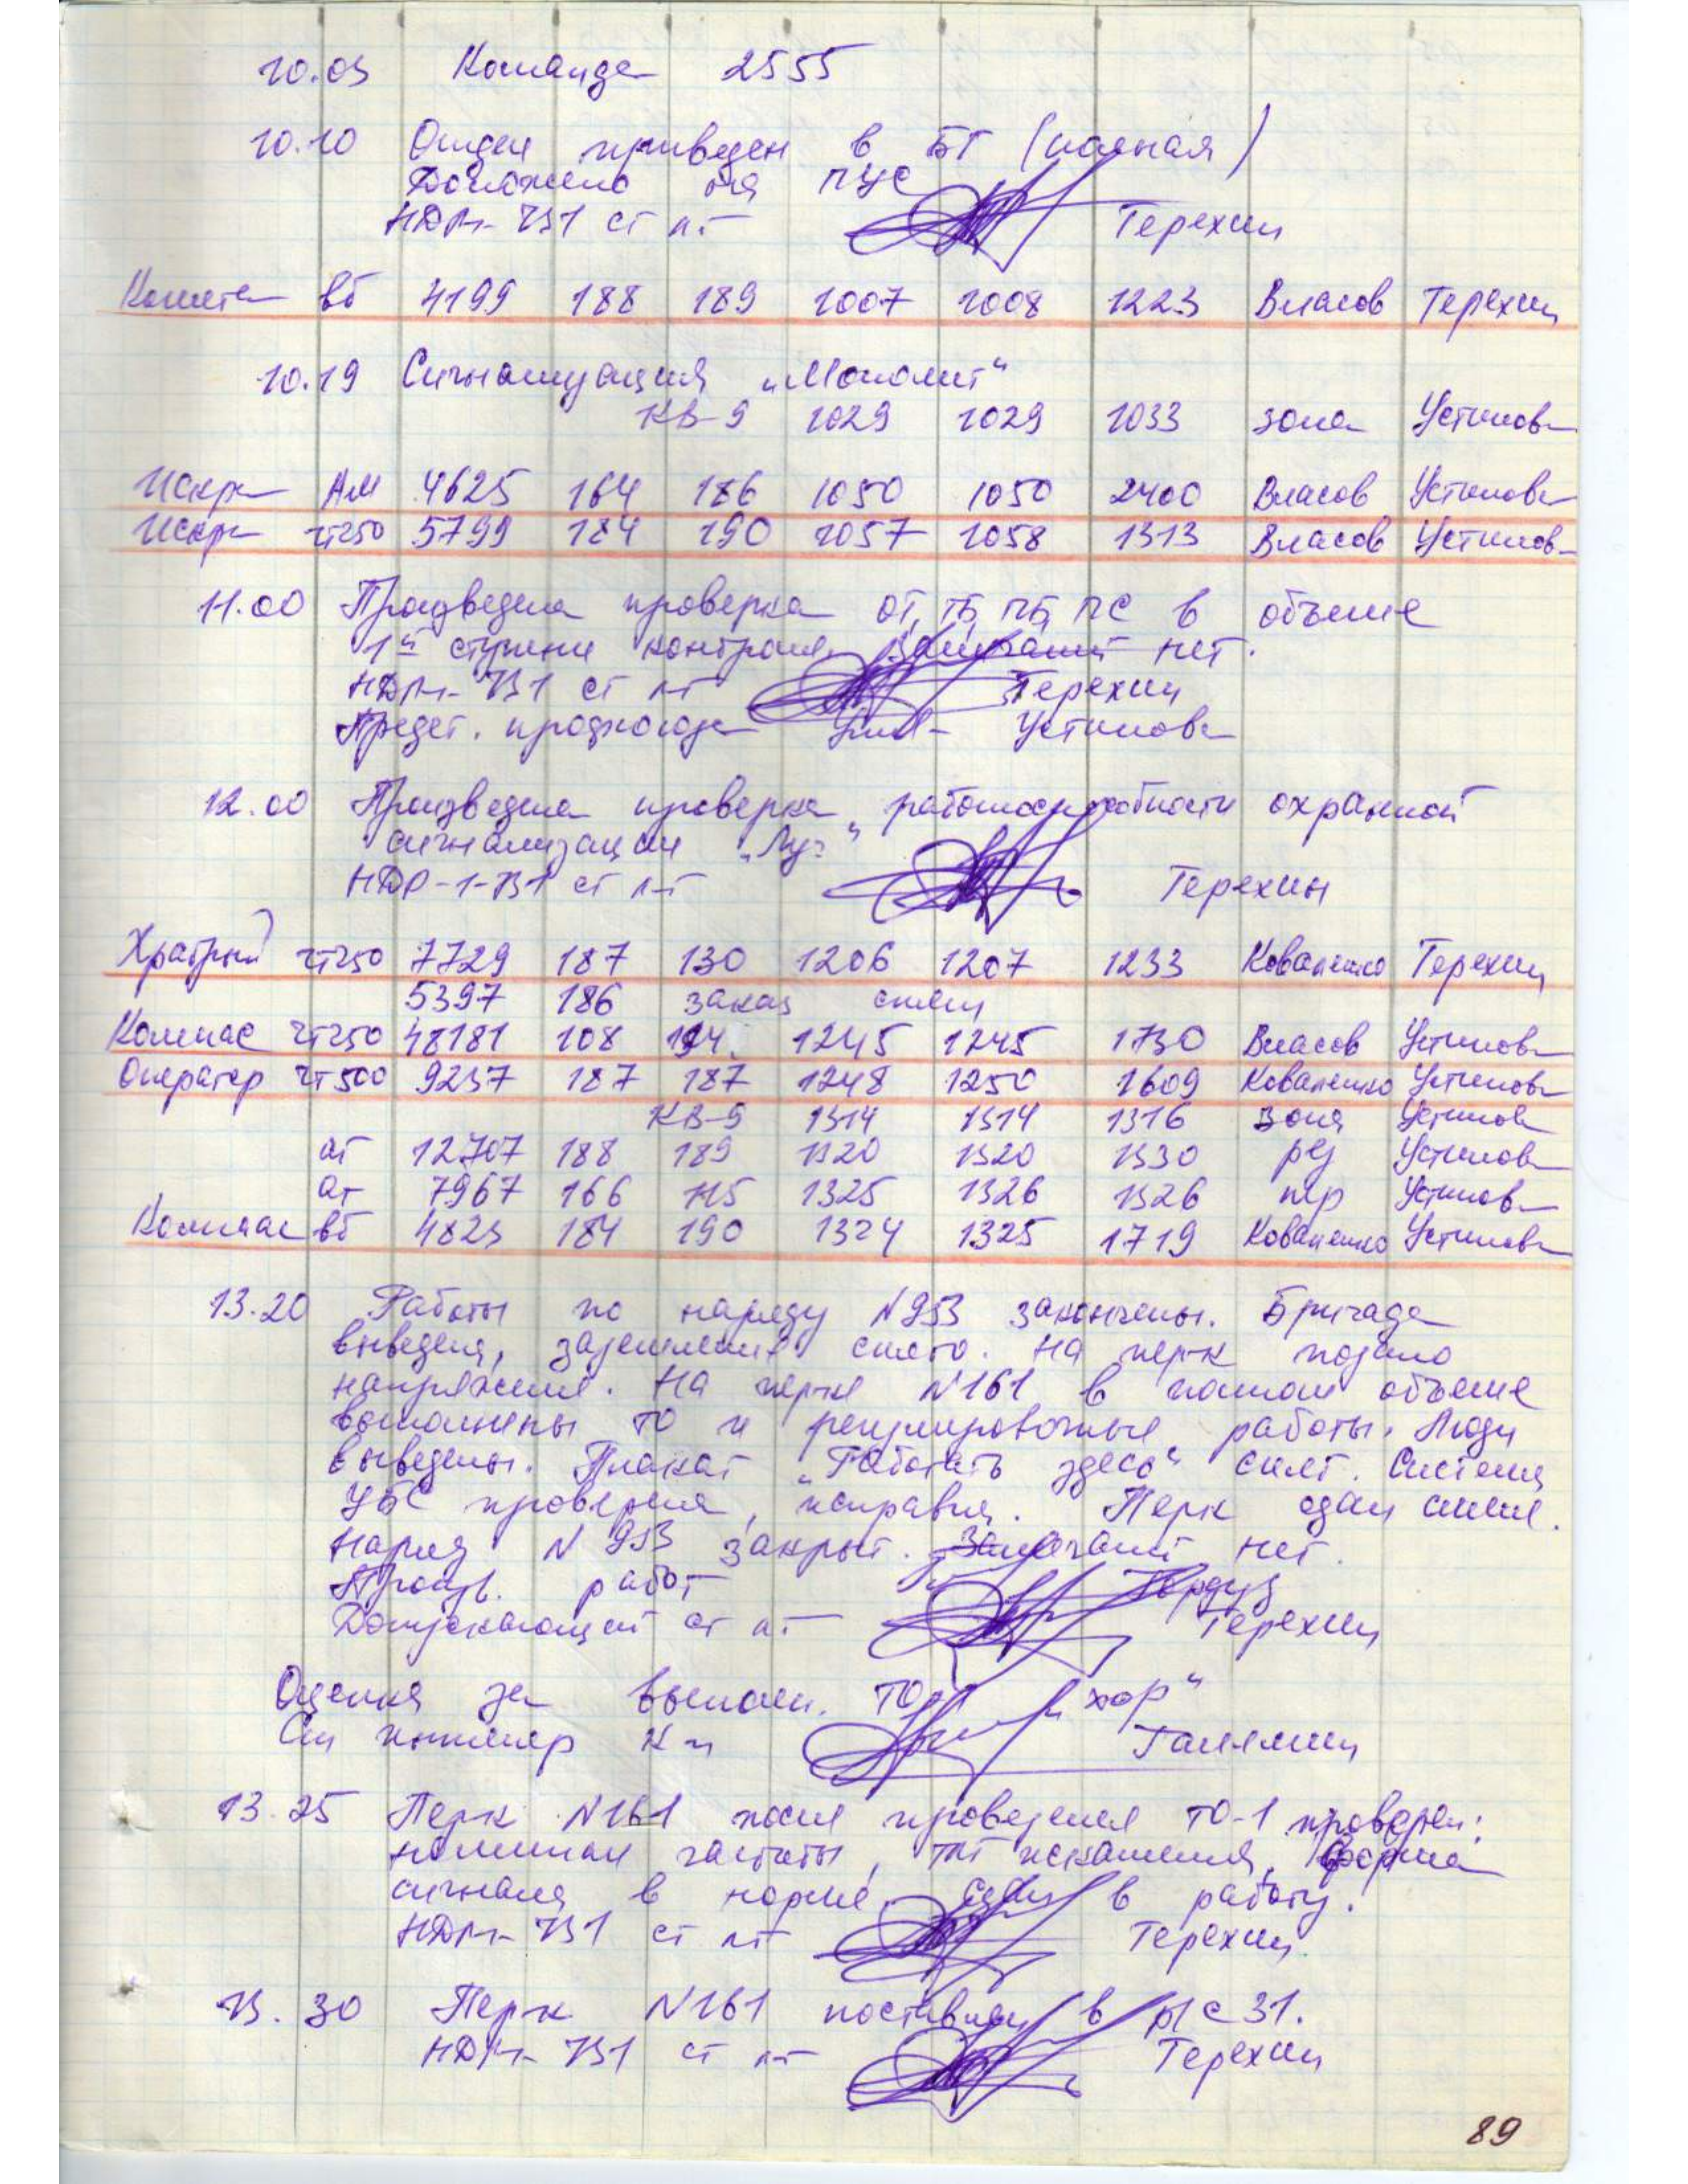 10.05 Команда 2555
10.10 Отдел приведен в БГ (полная)
Доложено на ПУС
НДР-1-731 ст л-т Терехин
Комета вб 4199 188 189 1007 1008 1223 Власов Терехин
10.19 Сигнализация „Монолит"
КВ-9 1029 1029 1033 зона Устинова
Искра АМ 4625 164 186 1050 1050 2400 Власов Устинова
Искра чт250 5799 184 190 1057 1058 1313 Власов Устинова
11.00 Произведена проверка ОТ, ТБ, ПБ, ПС в объеме
1й ступени контроля. Замечаний нет.
НДР-1-731 ст л-т Терехин
Предст. профсоюза Устинова
12.00 Произведена проверка работоспособности охранной
сигнализации „Луч"
НДР-1-731 ст л-т Терехин
Храбрый чт250 7729 187 130 1206 1207 1233 Коваленко Терехин
5397 186 заказ снят
Компас чт250 48181 108 194. 1245 1245 1730 Власов Устинова
Оператор чт500 9237 187 187 1248 1250 1609 Коваленко Устинова
КВ-9 1314 1314 1316 зона Устинова
ат 12707 188 189 1320 1320 1330 рез Устинова
ат 7967 166 115 1325 1326 1326 Устинова
Компас вб 4823 184 190 1324 1325 1719 Коваленко Устинова
13.20 Работы по наряду N953 закончены. Бригада
выведена, заземление снято. На перк подано
напряжение. На перке N161 в полном объеме
выполнены ТО и регулировочные работы. Люди
выведены. Плакат „Работать здесь" снят. Система
УБС проверена, исправна. Перк сдан смене.
Наряд N 953 закрыт. Замечаний нет.
Произв. работ
Допускающий ст л-т Терехин
Оценка за выполн. ТО „хор"
Ст инженер
13.25 Перк N161 после проведения ТО-1 проверен:
номинал частоты, искажения, форма
сигнала в норме. Сдан в работу.
НДР-1-731 ст л-т Терехин
13.30 Перк N161 поставлен в р/с 31.
НДР-1-731 ст л-т Терехин
89